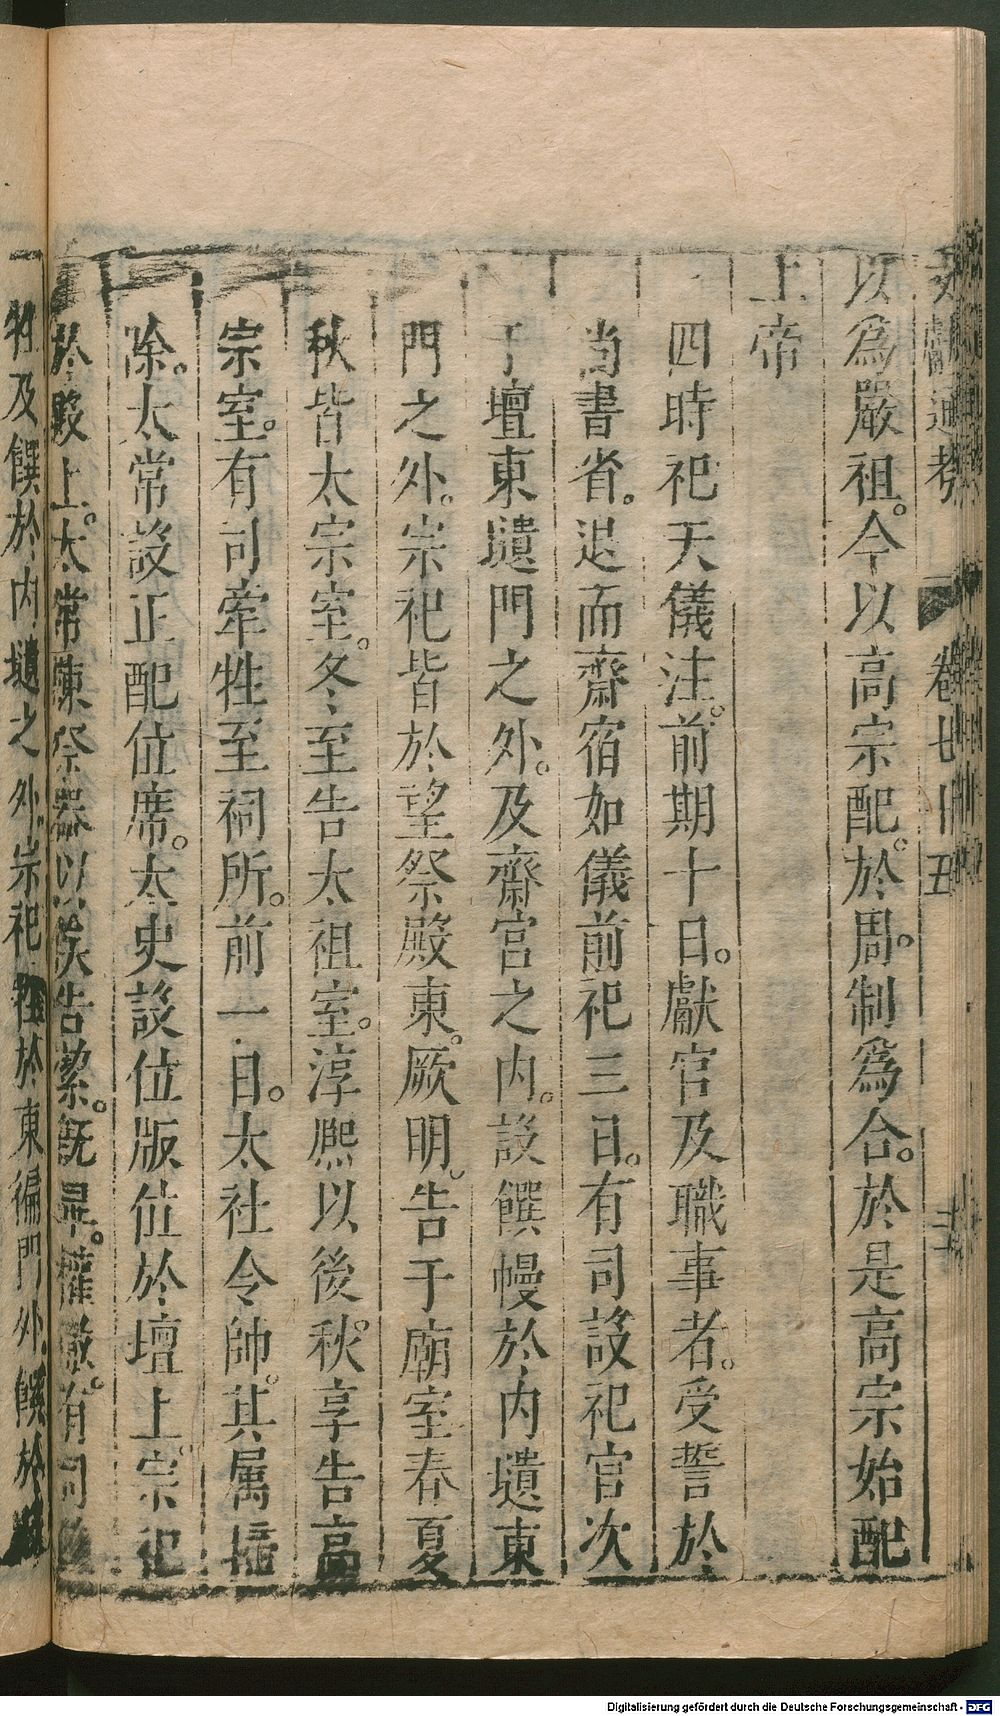 文獻通考 卷七十五
以爲嚴祖。今以高宗配。於周。制爲合。於是高宗始配
上帝
四時祀天儀注。前期十日。獻官及職事者。受誓於
尚書省。退而齋宿如儀前祀三日。有司設祀官次
于壇東壝門之外。及齋宮之内。設饌幔於内壝東
門之外。宗祀皆於望祭殿東。厥明。告于廟室春夏
秋皆太宗室。冬至告太祖室。淳熈以後秋享告高
宗室。有司牽牲至祠所。前一日。太社令帥。其属掃
除。太常設正配位席。太史設位版位於壇上。宗祀
於殿上。太常陳祭器以俟告㓗。既畢。權徹。有司
牲及饌於内壝之外。宗祀牲於東偏門外。饌於
Digitalisierung gefördert durch die Deutsche Forschungsgemeinschaft - DFG